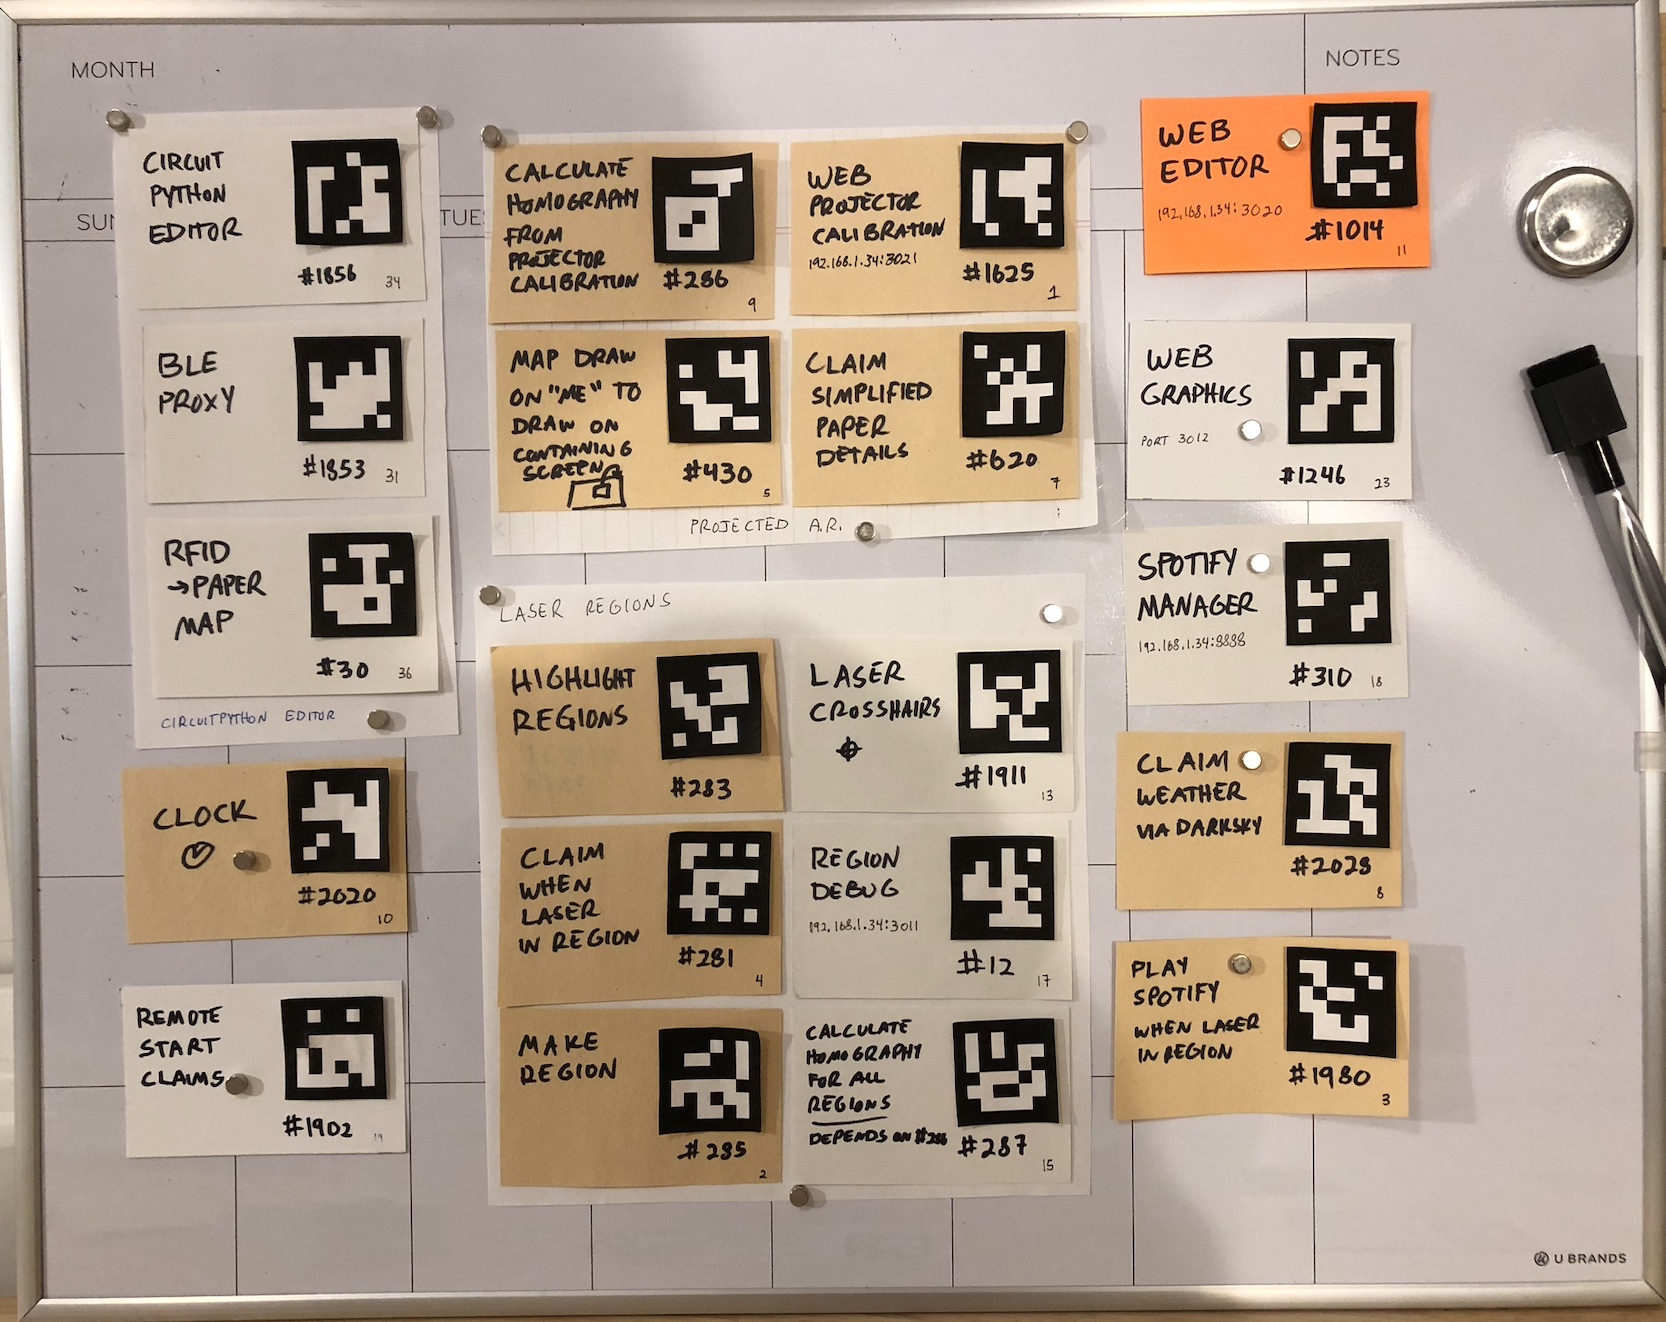 MONTH
NOTES
SUN
TUES
CIRCUIT
PYTHON
EDITOR
#1856
34
BLE
PROXY
#1853
31
RFID
→PAPER
MAP
#30
36
CIRCUITPYTHON EDITOR
CLOCK
#2020
10
REMOTE
START
CLAIMS
#1902
19
CALCULATE
HOMOGRAPHY
FROM
PROJECTOR
CALIBRATION
#286
9
WEB
PROJECTOR
CALIBRATION
192.168.1.34:3021
#1625
1
MAP DRAW
ON "ME" TO
DRAW ON
CONTAINING
SCREEN
#430
5
CLAIM
SIMPLIFIED
PAPER
DETAILS
#620
7
PROJECTED A.R.
LASER REGIONS
HIGHLIGHT
REGIONS
#283
LASER
CROSSHAIRS
#1911
13
CLAIM
WHEN
LASER
IN REGION
#281
4
REGION
DEBUG
192.168.1.34:3011
#12
17
MAKE
REGION
#285
2
CALCULATE
HOMOGRAPHY
FOR ALL
REGIONS
DEPENDS ON #286
#287
15
WEB
EDITOR
192.168.1.34:3020
#1014
11
WEB
GRAPHICS
PORT 3012
#1246
23
SPOTIFY
MANAGER
192.168.1.34:8888
#310
18
CLAIM
WEATHER
VIA DARKSKY
#2028
8
PLAY
SPOTIFY
WHEN LASER
IN REGION
#1980
3
U BRANDS